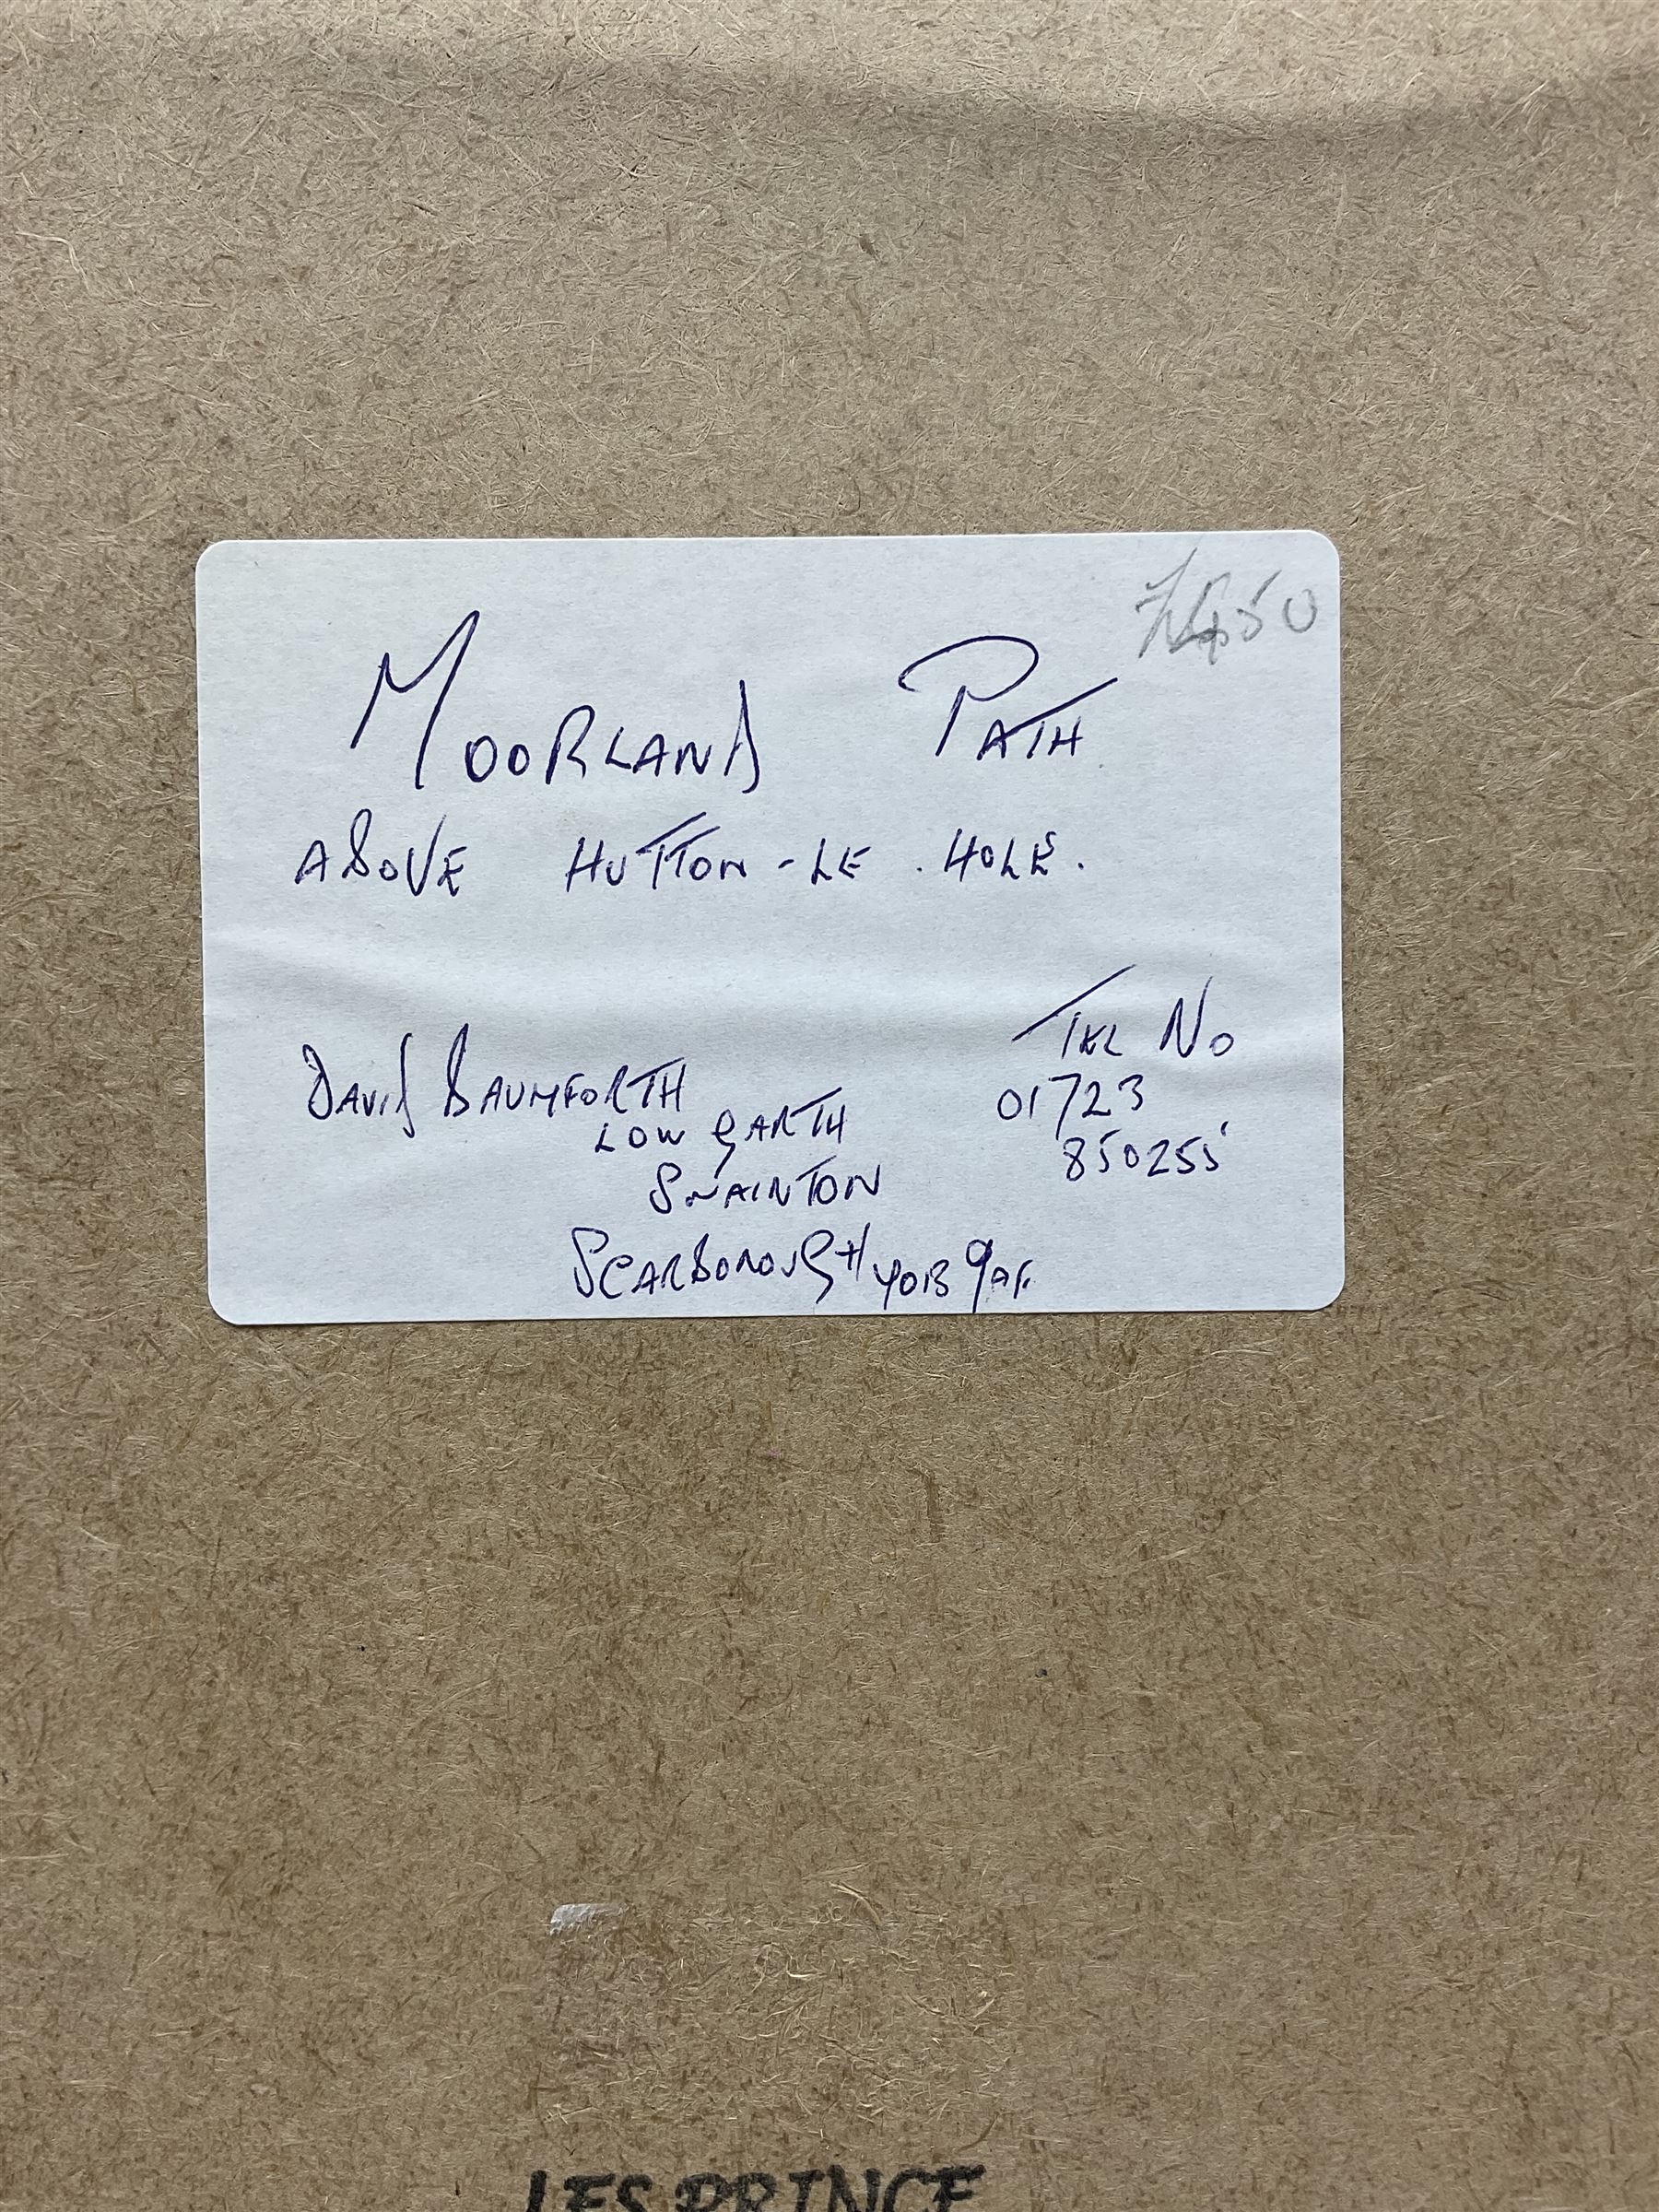 £450
MOORLAND PATH
ABOVE HUTTON-LE.HOLE.
TEL NO
DAVID BAUMFORTH 01723
LOW GARTH 850255
SNAINTON
SCARBOROUGH YO13 9AF.
LES PRINCE